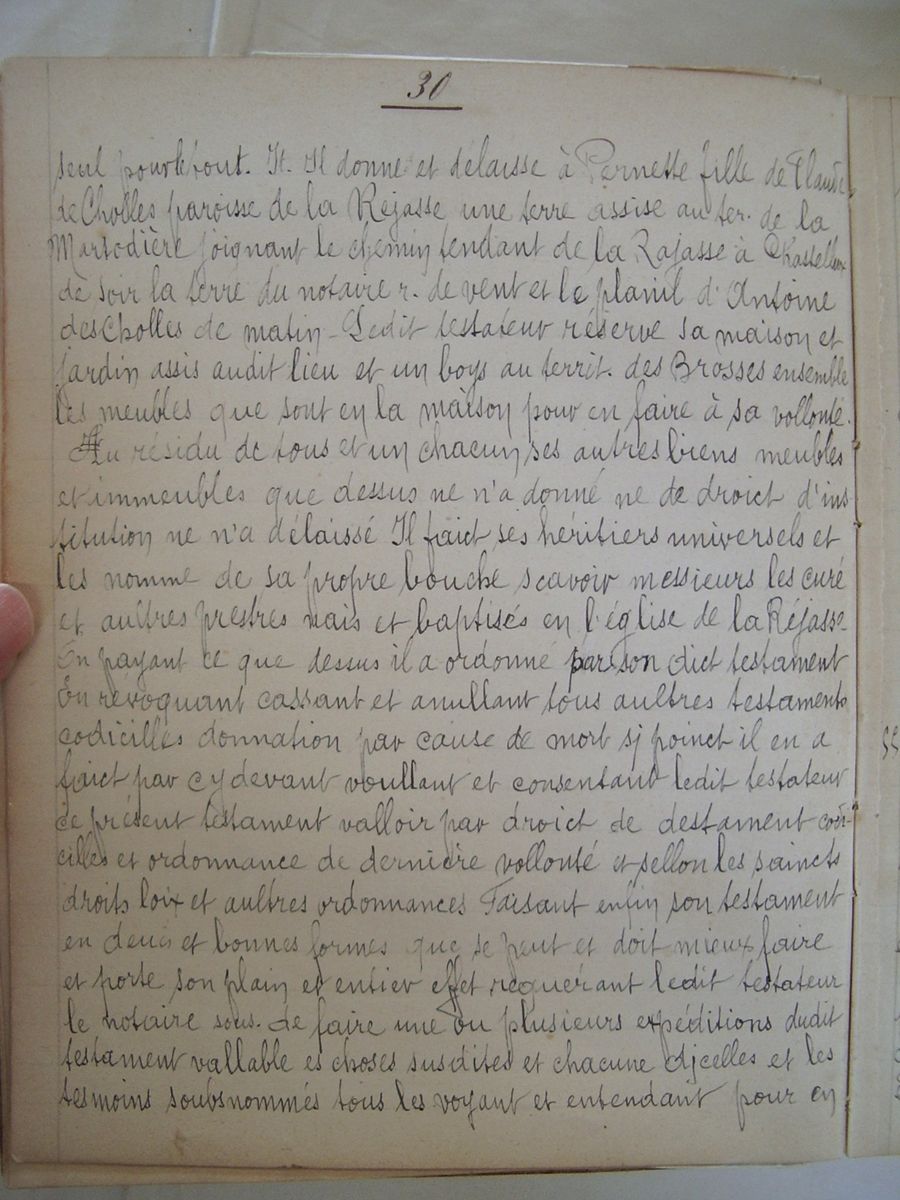 30
seul pour le tout. It. Il donne et délaisse à Pernette fille de Claude
de Cholles paroisse de la Réjasse une terre assise au ter. de la
Marsodière joignant le chemin tendant de la Rajasse à Chastellux
de soir la terre du notaire r. de vent et le planil d'Antoine
des Cholles de matin - Ledit testateur réserve sa maison et
jardin assis audit lieu et un boys au territ. des Brosses ensemble
les meubles que sont en la maison pour en faire à sa vollonté.
Au résidu de tous et un chacun ses autres biens meubles
et immeubles que dessus ne n'a donné ne de droict d'ins-
titution ne n'a délaissé Il faict ses héritiers universels et
les nomme de sa propre bouche scavoir messieurs les curé
et aultres prestres nais et baptisés en l'église de la Réjasse
En payant ce que dessus il a ordonné par son dict testament
En révoquant cassant et anullant tous aultres testaments
codicilles donnation par cause de mort sj poinct il en a
faict par cy devant voullant et consentant ledit testateur
ce présent testament valloir par droict de destament codi-
cilles et ordonnance de dernière vollonté et sellon les saincts
droits loix et aultres ordonnances Faisant enfin son testament
en deue et bonnes formes que se peut et doit mieux faire
et porte son plain et entier effet requérant ledit testateur
le notaire sous. de faire une ou plusieurs expéditions dudit
testament vallable es choses susdites et chacune djcelles et les
tesmoins soubsnommés tous les voyant et entendant pour en
55